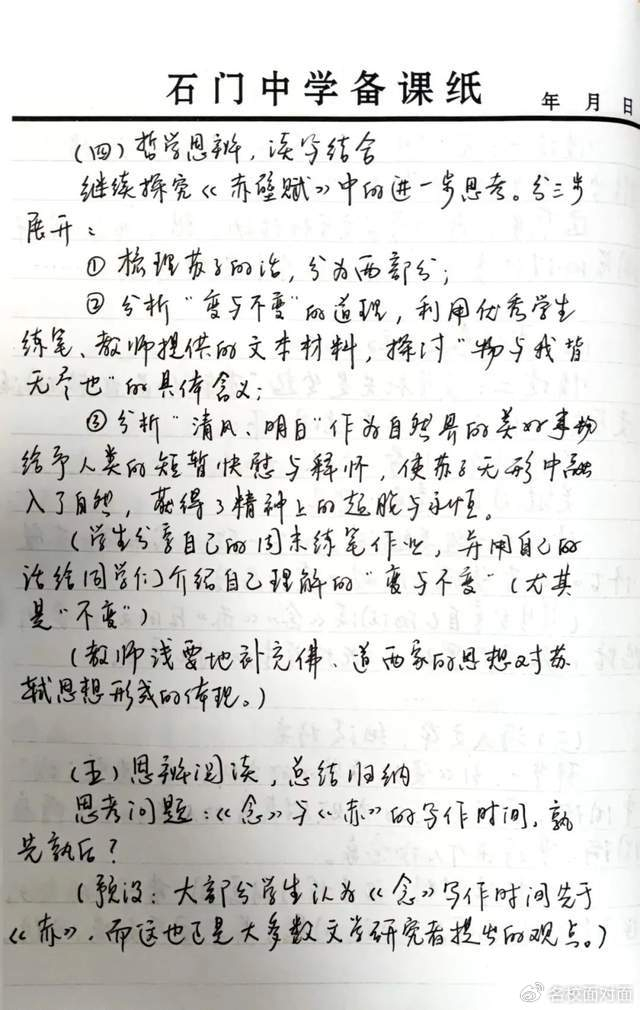 石门中学备课纸
年 月 日
(四)哲学思辨,读写结合
继续探究《赤壁赋》中的进一步思考。分三步
展开:
① 梳理苏子的话,分为两部分;
② 分析"变与不变"的道理,利用优秀学生
练笔、教师提供的文本材料,探讨"物与我皆
无尽也"的具体含义;
③ 分析"清风、明月"作为自然界的美好事物
给予人类的短暂快慰与释怀,使苏子无形中融
入了自然,获得了精神上的超脱与永恒。
(学生分享自己的周末练笔作业,并用自己的
话给同学们介绍自己理解的"变与不变"(尤其
是"不变")
(教师浅要地补充佛、道两家的思想对苏
轼思想形成的体现。)
(五)思辨阅读,总结归纳
思考问题:《念》与《赤》的写作时间,孰
先孰后?
(预设:大部分学生认为《念》写作时间先于
《赤》,而这也正是大多数文学研究者提出的观点。)
名校面对面